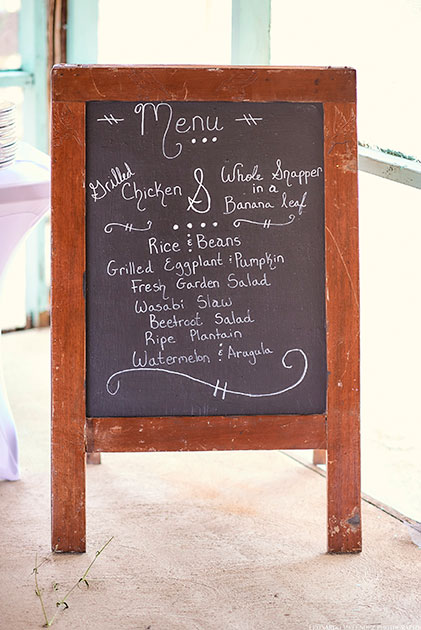 Menu
Grilled Chicken & Whole Snapper in a Banana leaf
Rice & Beans
Grilled Eggplant & Pumpkin
Fresh Garden Salad
Wasabi Slaw
Beetroot Salad
Ripe Plantain
Watermelon & Arugula